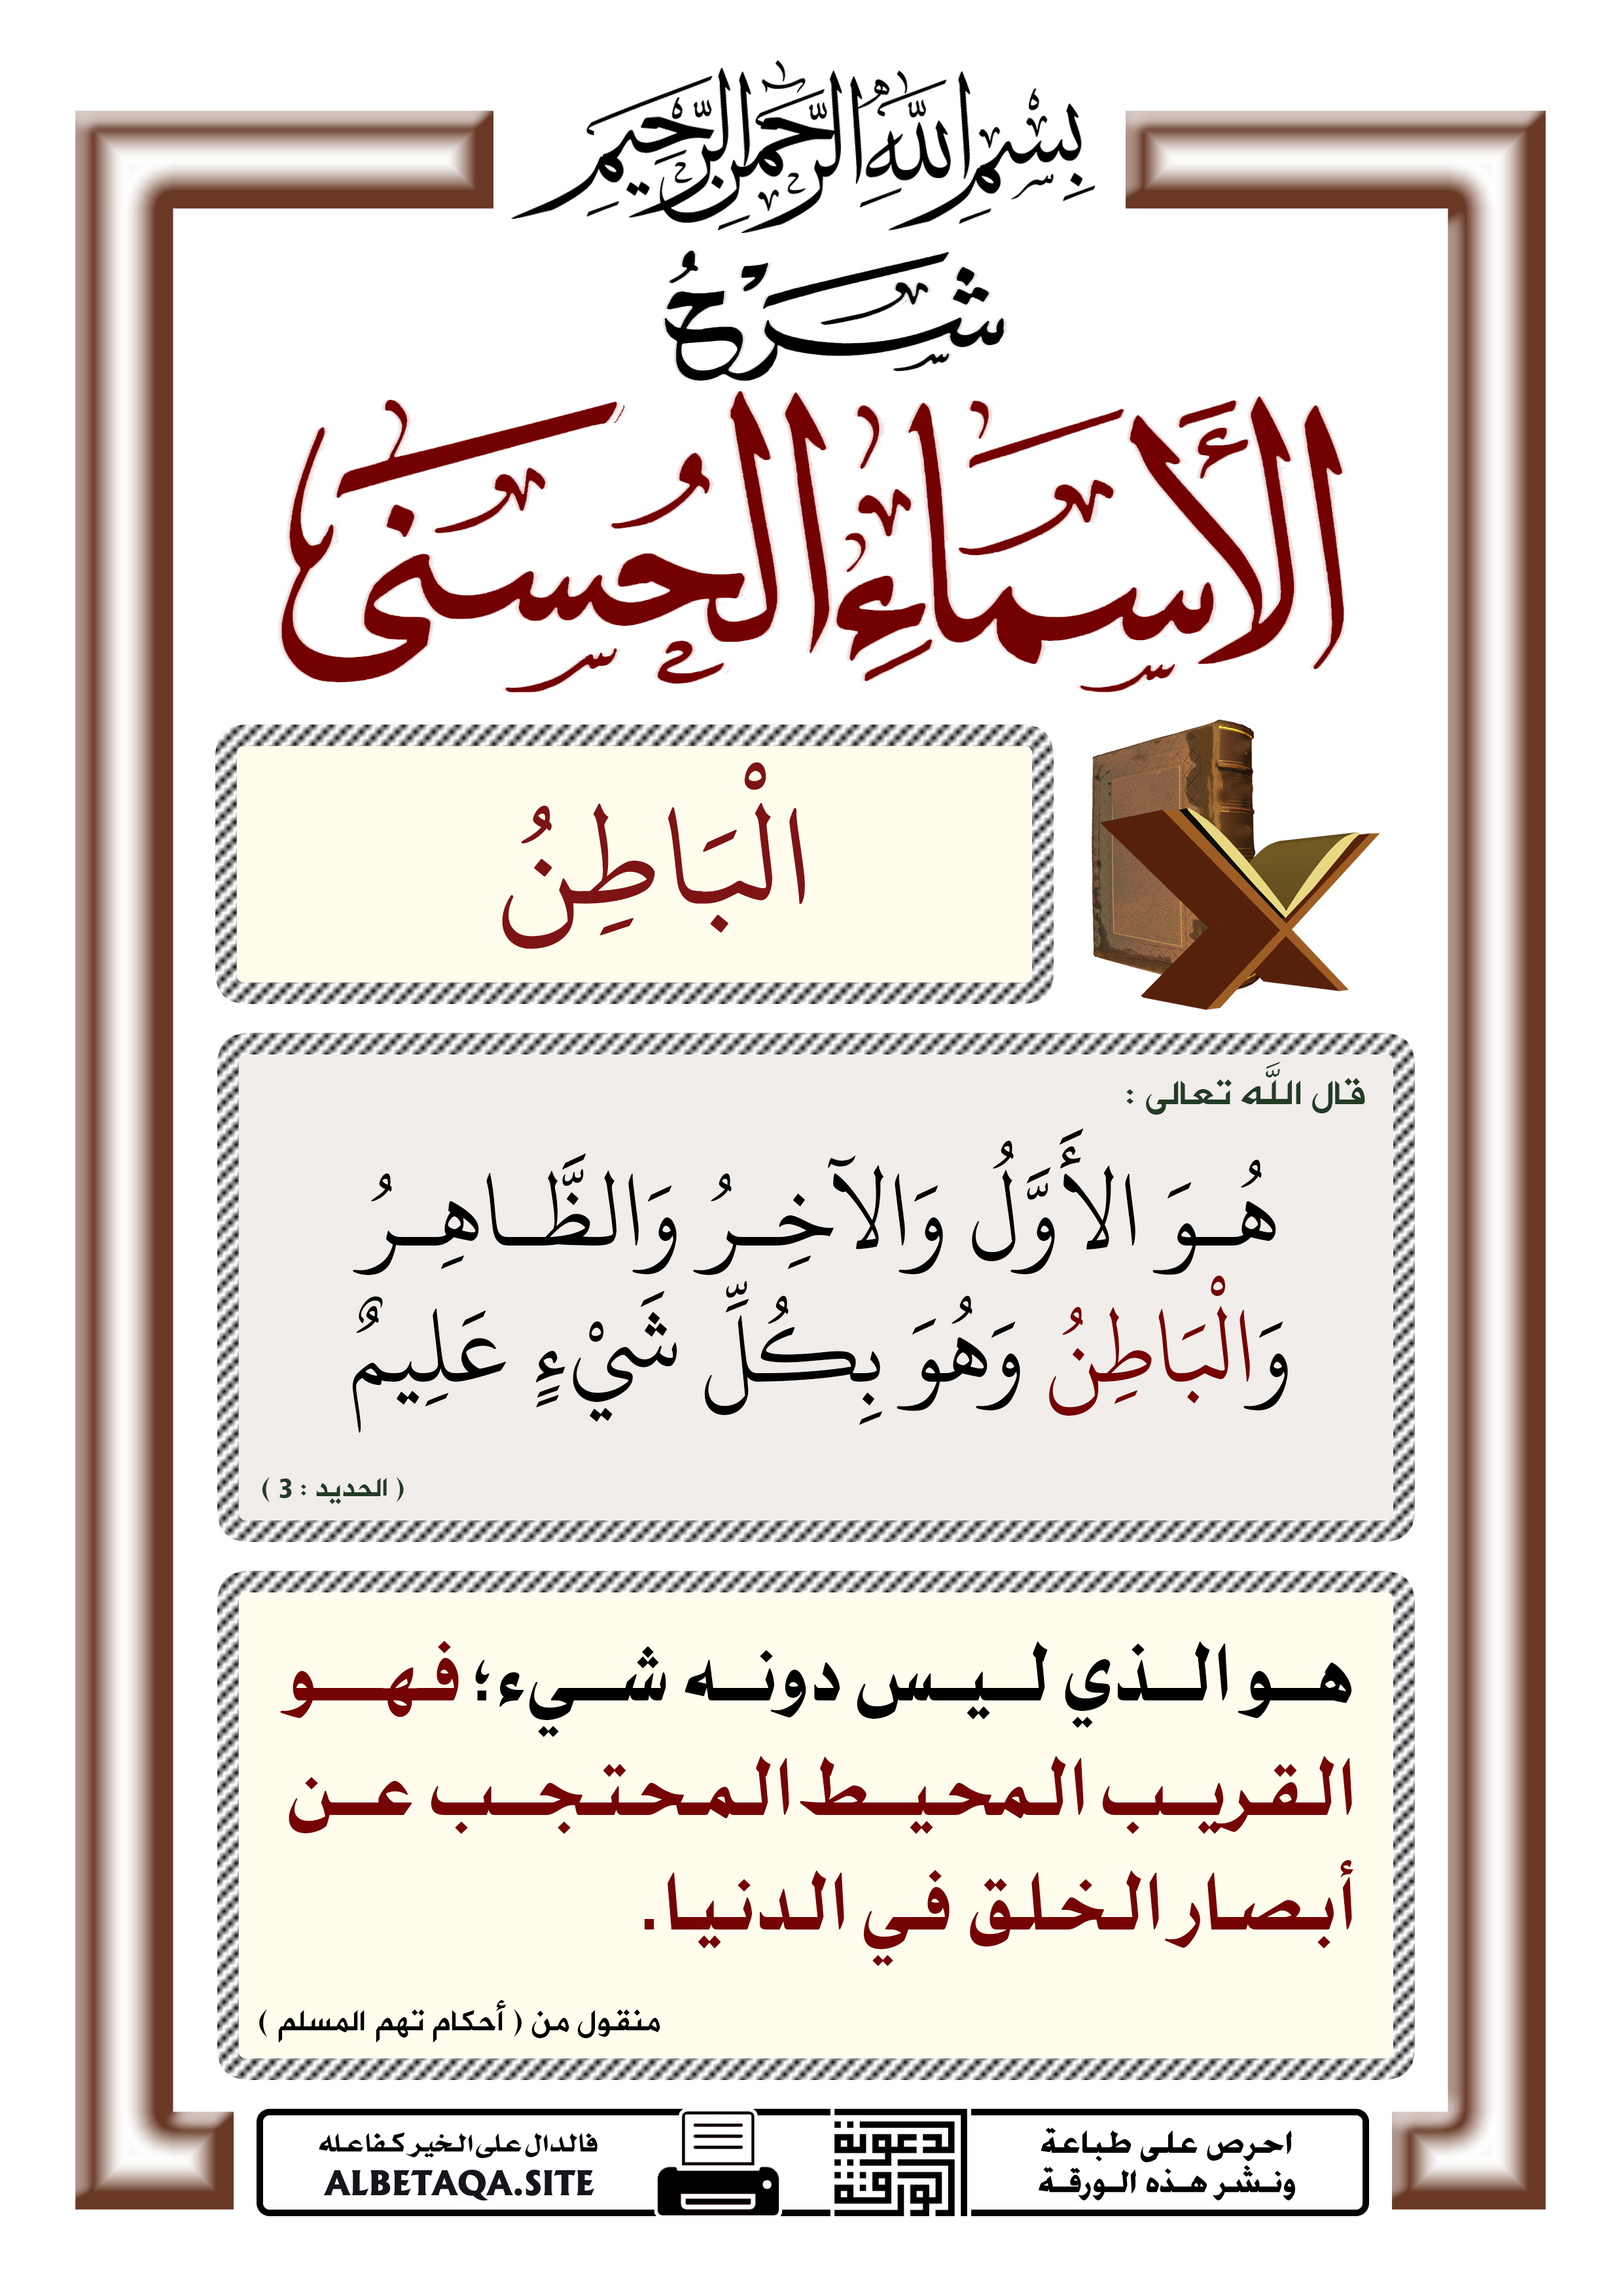 بِسْمِ اللَّهِ الرَّحْمَنِ الرَّحِيمِ
شَرْحُ
الأَسْمَاءِ الْحُسْنَى
الْبَاطِنُ
قال اللَّه تعالى :
هُـوَ الأَوَّلُ وَالآخِـرُ وَالظَّـاهِـرُ
وَالْبَاطِنُ وَهُوَ بِكُلِّ شَيْءٍ عَلِيمٌ
( الحديد : 3 )
هـو الـذي لـيـس دونـه شـيء؛ فـهـو
القريـب المحيـط المـحتـجـب عـن
أبصار الخلق في الدنيا.
منقول من ( أحكام تهم المسلم )
احرص على طباعة
ونـشر هـذه الـورقـة
الدعوية
الورقة
فالدال على الخير كفاعله
ALBETAQA.SITE